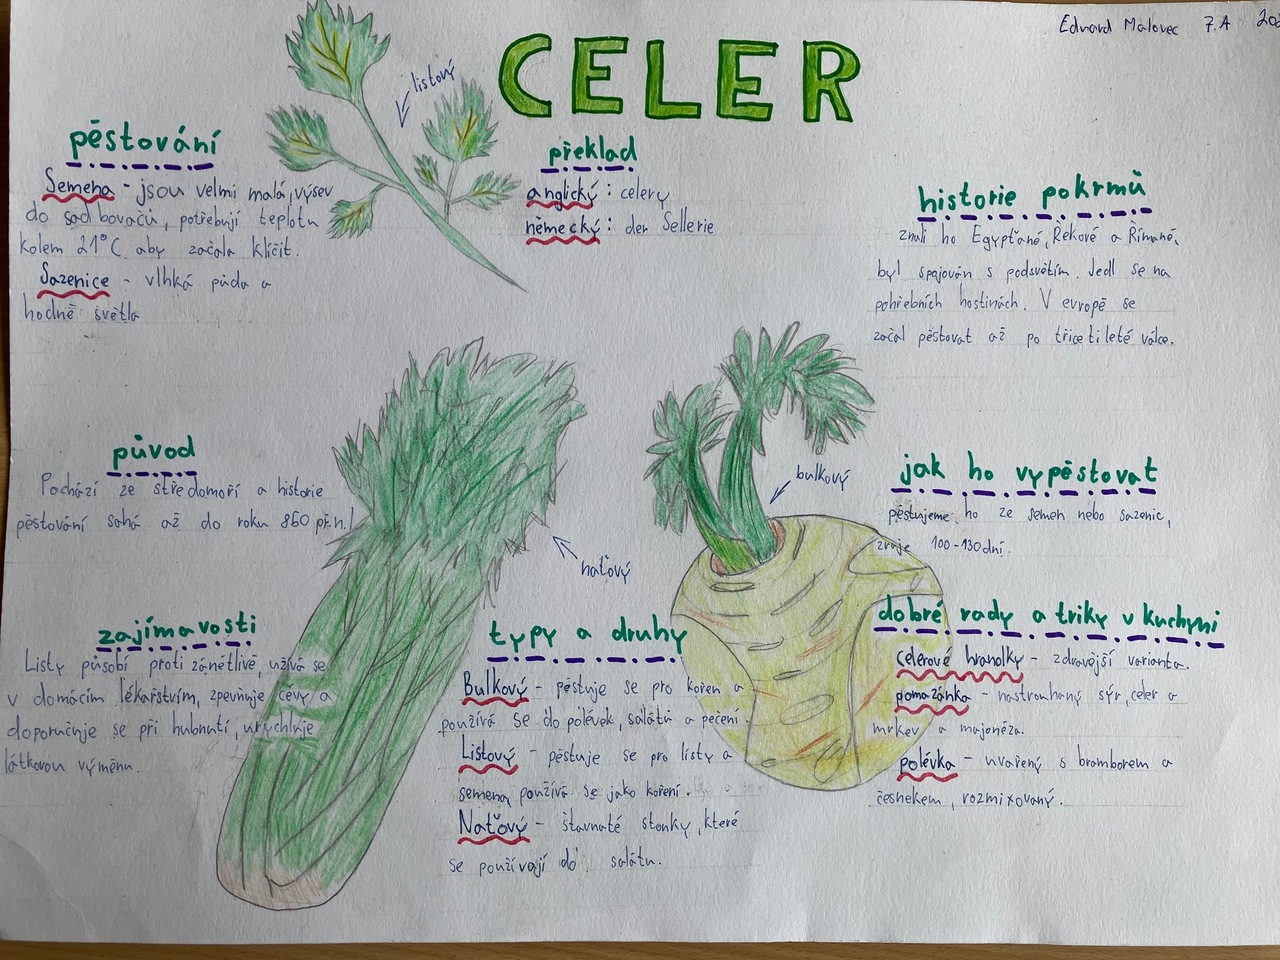 Eduard Malovec 7.A
CELER
listový
pěstování
Semena - jsou velmi malá, výsev
do sadbovačů, potřebují teplotu
kolem 21°C aby začala klíčit.
Sazenice - vlhká půda a
hodně světla
překlad
anglický: celery
německý: der Sellerie
historie pokrmů
znali ho Egypťané, Řekové a Římané,
byl spojován s podsvětím. Jedl se na
pohřebních hostinách. V evropě se
začal pěstovat až po třicetileté válce.
původ
Pochází ze středomoří a historie
pěstování sahá až do roku 850 př.n.l
naťový
bulkový
jak ho vypěstovat
pěstujeme ho ze semen nebo sazenic,
zraje 100-130dní.
zajímavosti
Listy působí proti zánětlivě, užívá se
v domácím lékařstvím, zpevňuje cévy a
doporučuje se při hubnutí, urychluje
látkovou výměnu.
typy a druhy
Bulkový - pěstuje se pro kořen a
používá se do polévek, salátů a pečení.
Listový - pěstuje se pro listy a
semena, používá se jako koření.
Naťový - šťavnaté stonky, které
se používají do salátu.
dobré rady a triky v kuchyni
celerové hranolky - zdravější varianta.
pomazánka - nastrouhaný sýr, celer a
mrkev a majonéza.
polévka - uvařený s bramborem a
česnekem, rozmixovaný.